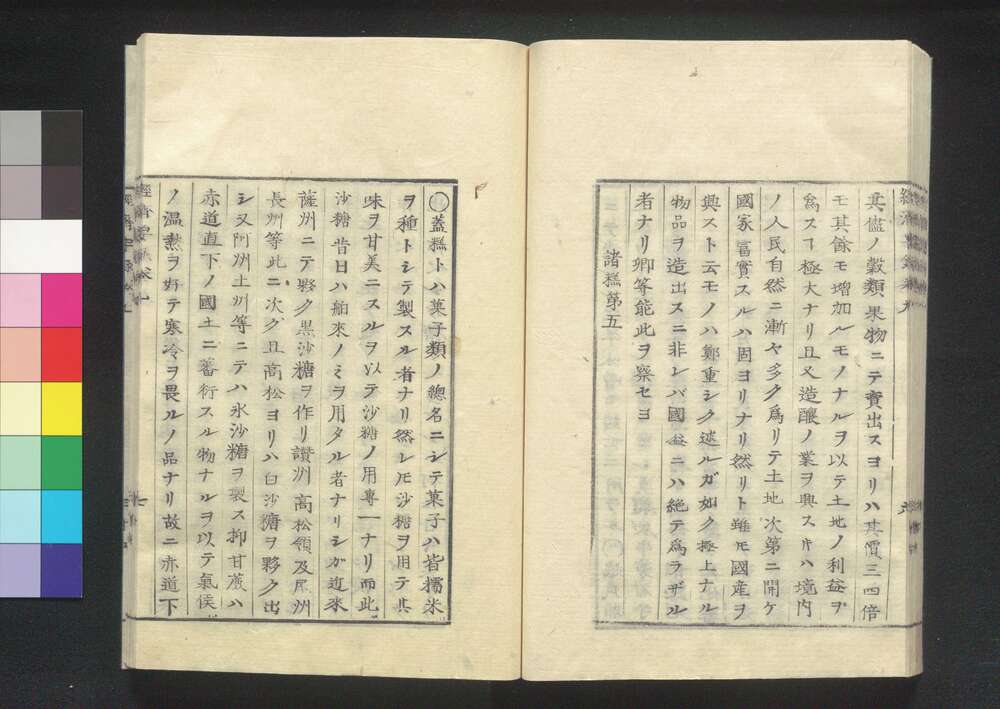 其儘ノ穀類果物ニテ賣出スヨリハ其價三四倍
モ其餘モ增加ルモノナルヲ以テ土地ノ利益ヲ
爲スヿ極大ナリ且又造釀ノ業ヲ興スキハ境内
ノ人民自然ニ漸々多ク爲リテ土地次第ニ開ケ
國家富實スルハ固ヨリナリ然リト雖モ國産ヲ
興スト云モノハ鄭重シク述ルガ如ク極上ナル
物品ヲ造出スニ非レバ國益ニハ絶テ爲ラザル
者ナリ卿等能此ヲ察セヨ
諸糕第五
〇蓋糕トハ菓子類ノ總名ニシテ菓子ハ皆糯米
ヲ種トシテ製スル者ナリ然レ𪜈沙糖ヲ用テ其
味ヲ甘美ニスルヲ以テ沙糖ノ用專一ナリ而此
沙糖昔日ハ舶來ノミヲ用タル者ナリシガ近來
薩州ニテ夥ク黒沙糖ヲ作リ讚州高松領及尾州
長州等此ニ次グ且高松ヨリハ白沙糖ヲ夥ク出
シ又阿州土州等ニテハ氷沙糖ヲ製ス抑甘蔗ハ
赤道直下ノ國土ニ蕃衍スル物ナルヲ以テ氣候
ノ温熱ヲ好テ寒冷ヲ畏ルノ品ナリ故ニ赤道下